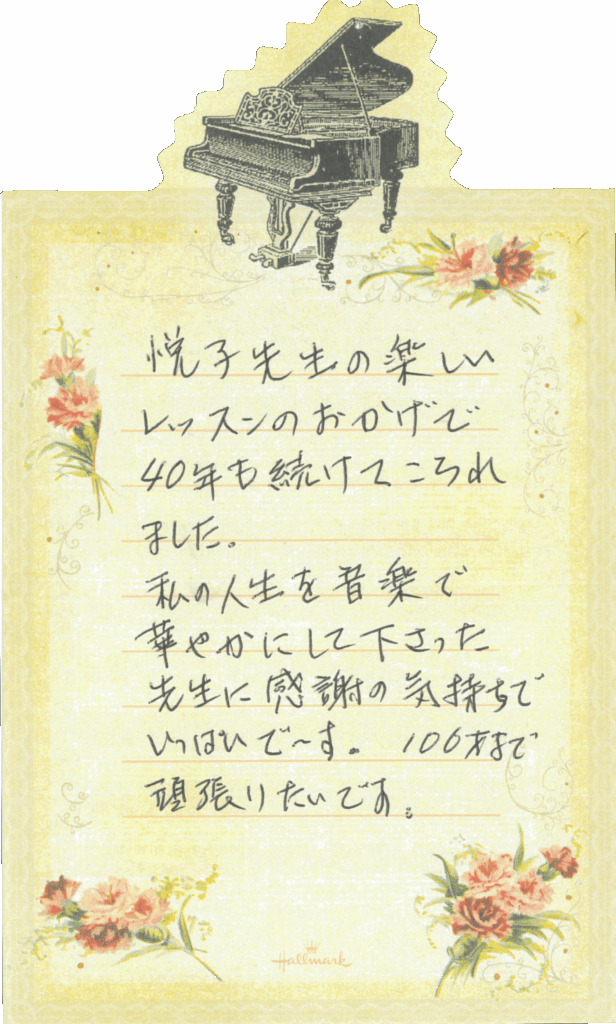 悦子先生の楽しい
レッスンのおかげで
40年も続けてころれ
ました。
私の人生を音楽で
華やかにして下さった
先生に感謝の気持ちで
いっぱいで〜す。 100才まで
頑張りたいです。
Hallmark